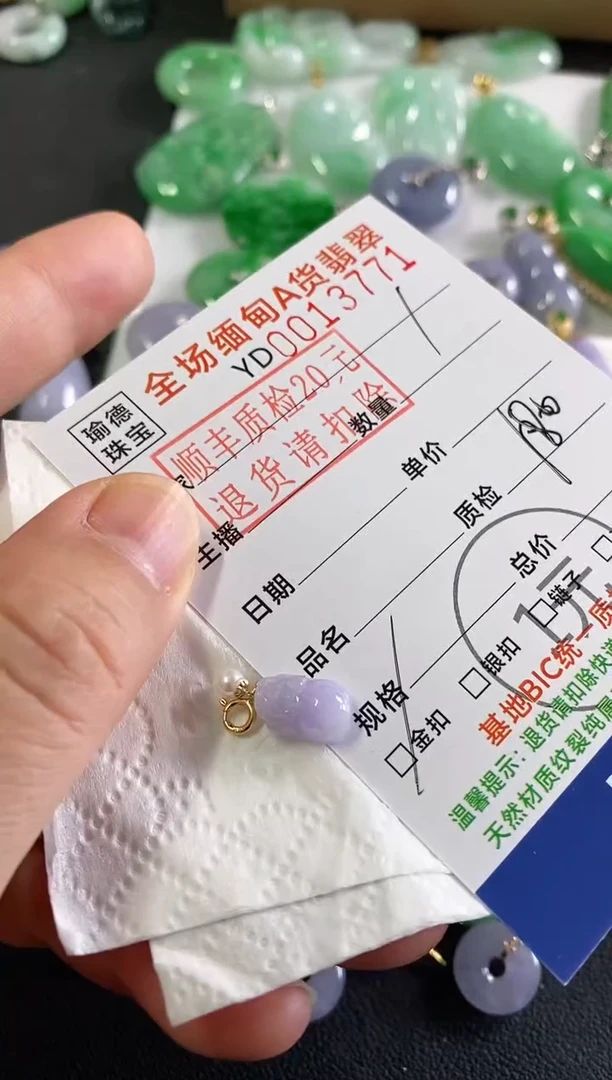 全场缅甸A货翡翠
YD0013771
瑜德
珠宝
顺丰质检20元
退货请扣除
数量
主播
单价
日期
质检
品名
总价
规格
金扣
银扣
链子
1元
基地BIC统一质
温馨提示:退货需扣除快递
天然材质纹裂纯属